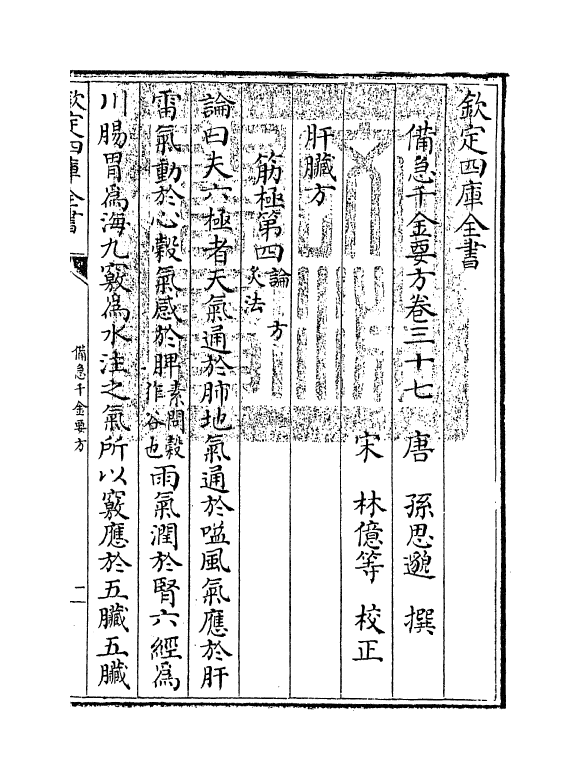 欽定四庫全書
備急千金要方卷三十七　唐　孫思邈　撰
宋　林億等　校正
肝臟方
筋極第四論　方
灸法
論曰夫六極者天氣通於肺地氣通於嗌風氣應於肝
雷氣動於心穀氣感於脾素問穀
作谷也雨氣潤於腎六經為
川腸胃為海九竅為水注之氣所以竅應於五臟五臟
欽定四庫全書
備急千金要方
一